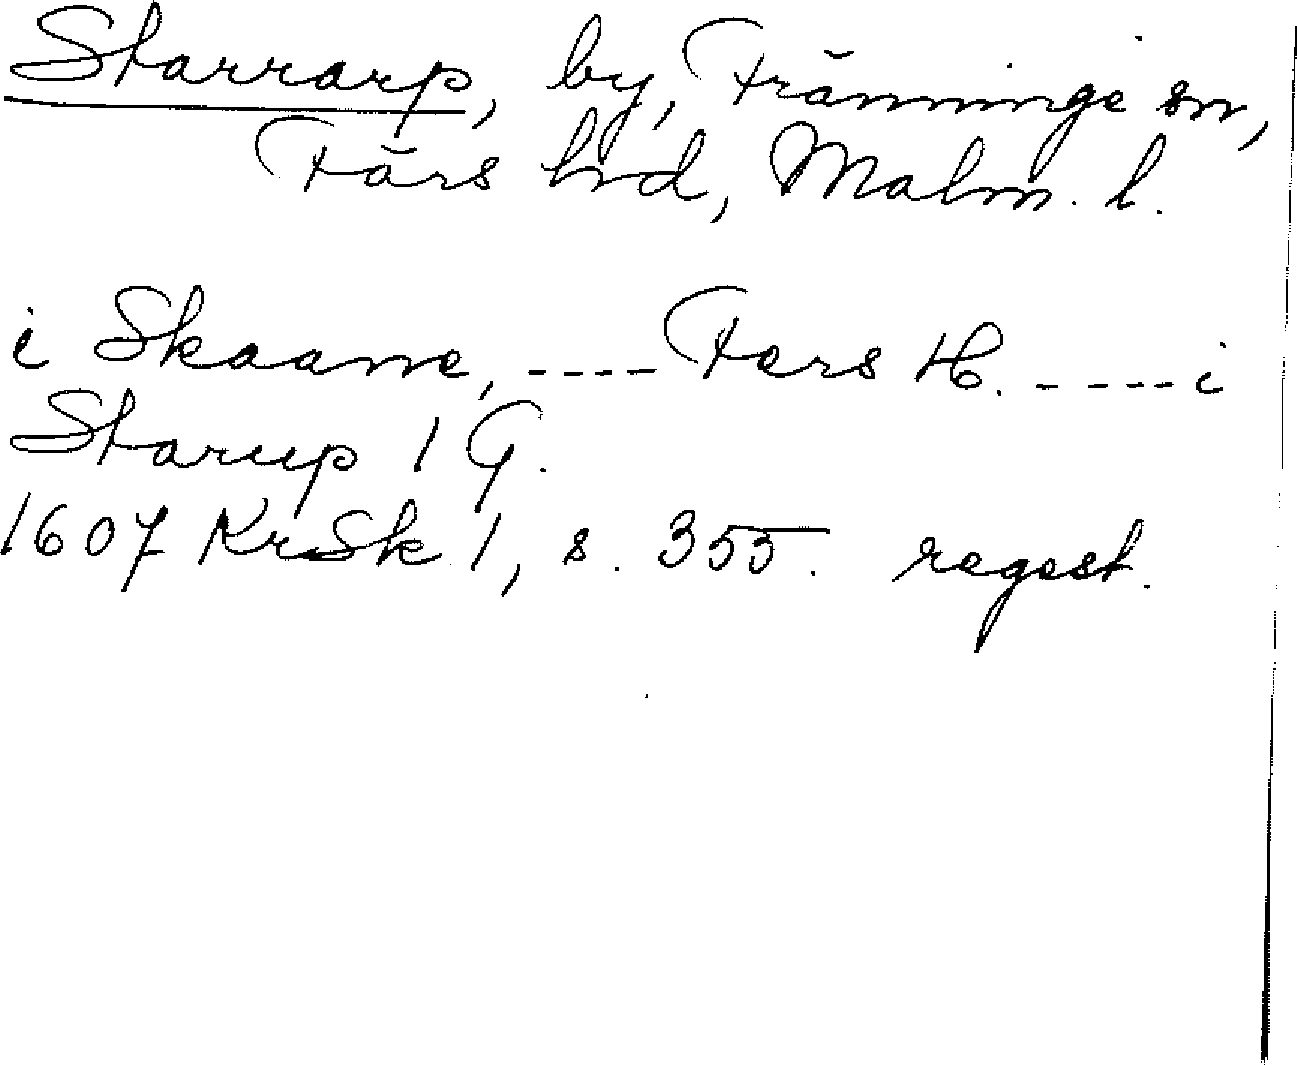 Starrarp, by, Fränninge sn,
Färs hd, Malm. l.
i Skaane, ---- Fers H. ----- i
Starup 1 G.
1607 KrSk 1, s. 355. regest.